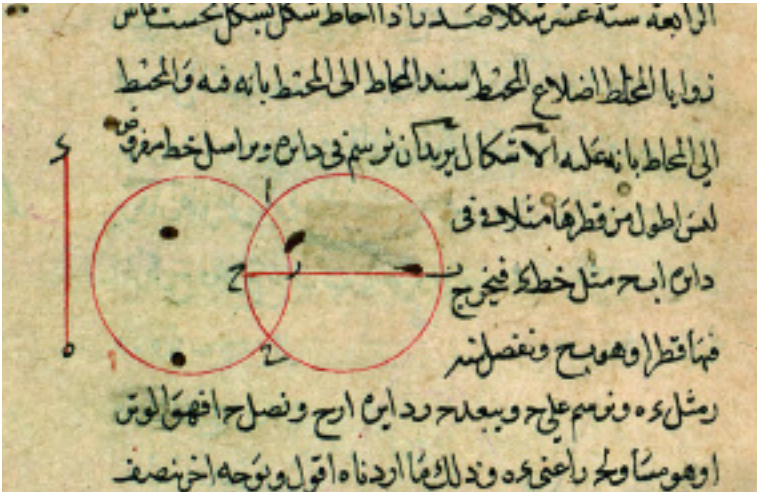 الرابعة ستة عشر شكلا صدر اذا احاط شكل بشكل بحيث تماس
زوايا المحاط اضلاع المحيط سند المحاط الى المحيط بانه فيه والمحيط
الى المحاط بانه عليه الاشكال ا نريد ان نرسم في دايره وترا مثل خط مفروض
ليس اطول من قطرها مثلا في
دايره ا ب ح مثل خط ء ه فيخرج
فيها قطرا وهو ب ح ونفصل منه
ح ر مثل ء ه ونرسم على ح وببعد ح ر دايره ا ر ح ونصل ح ا فهو الوتر
اذ هو مساو لح ر اعنى ء ه وذلك ما اردناه اقول وبوجه اخر ننصف
ء
ا
ح
ر
ب
ه
ح